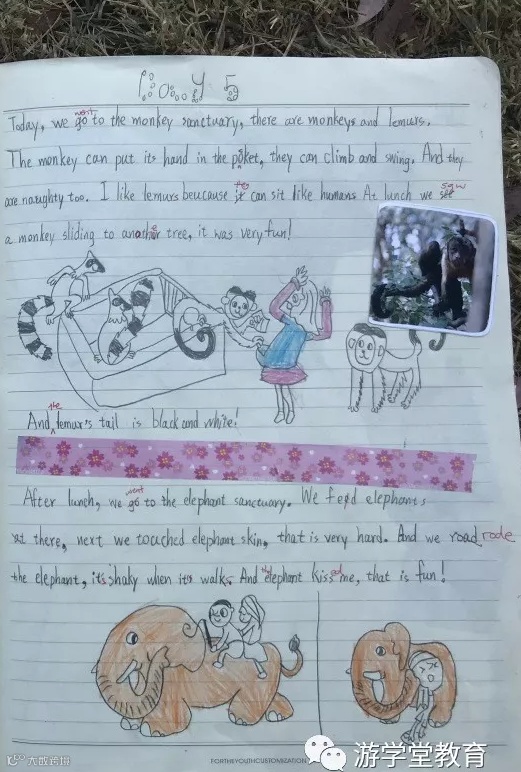 Day 5
went
Today, we go to the monkey sanctuary, there are monkeys and lemurs.
The monkey can put its hand in the poket, they can climb and swing. And they
are naughty too. I like lemurs beucause it can sit like humans At lunch we see
they
saw
a monkey sliding to another tree, it was very fun!
the
And lemur's tail is black and white!
went
After lunch, we go to the elephant sanctuary. We feed elephants
at there, next we touched elephant skin, that is very hard. And we road rode
the elephant, it's shaky when its walks. And the elephant kissed me, that is fun!
FORTHEYOUTHCUSTOMIZATION
游学堂教育
大数跨境